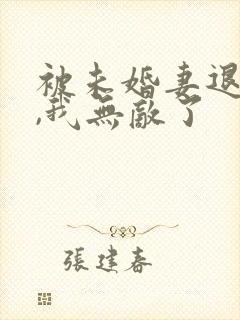 被未婚妻退
,我無敵了
張建春